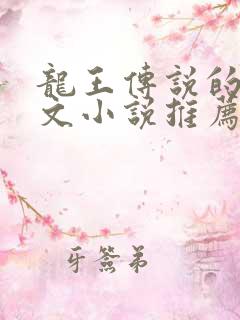 龍王傳說的
文小說推薦
牙簽弟